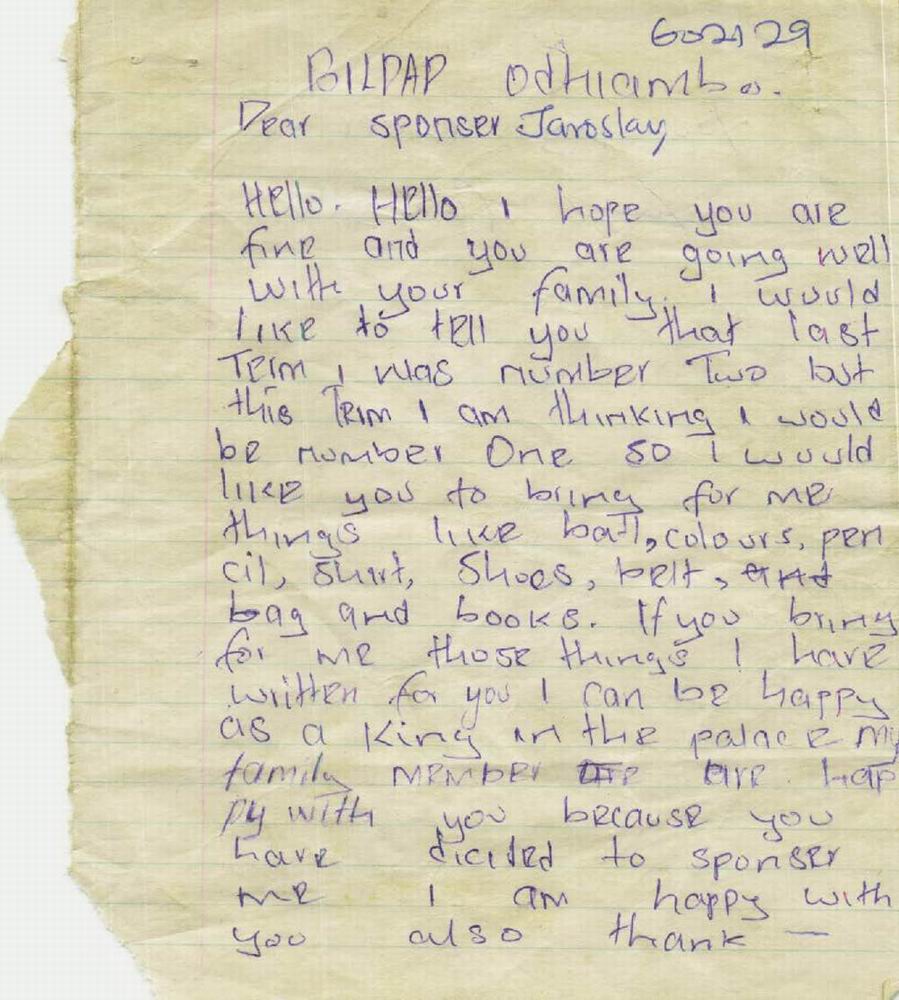 602129
BILDAD Odhiambo.
Dear sponser Jaroslav
Hello. Hello I hope you are
fine and you are going well
with your family. I would
like to tell you that last
Term I was number Two but
this Term I am thinking I would
be number One so I would
like you to bring for me
things like ball, colours, pen
cil, shirt, shoes, belt, and
bag and books. If you bring
for me those things I have
written for you I can be happy
as a king in the palace my
family member are are hap
py with you because you
have dicided to sponser
me I am happy with
you also thank —